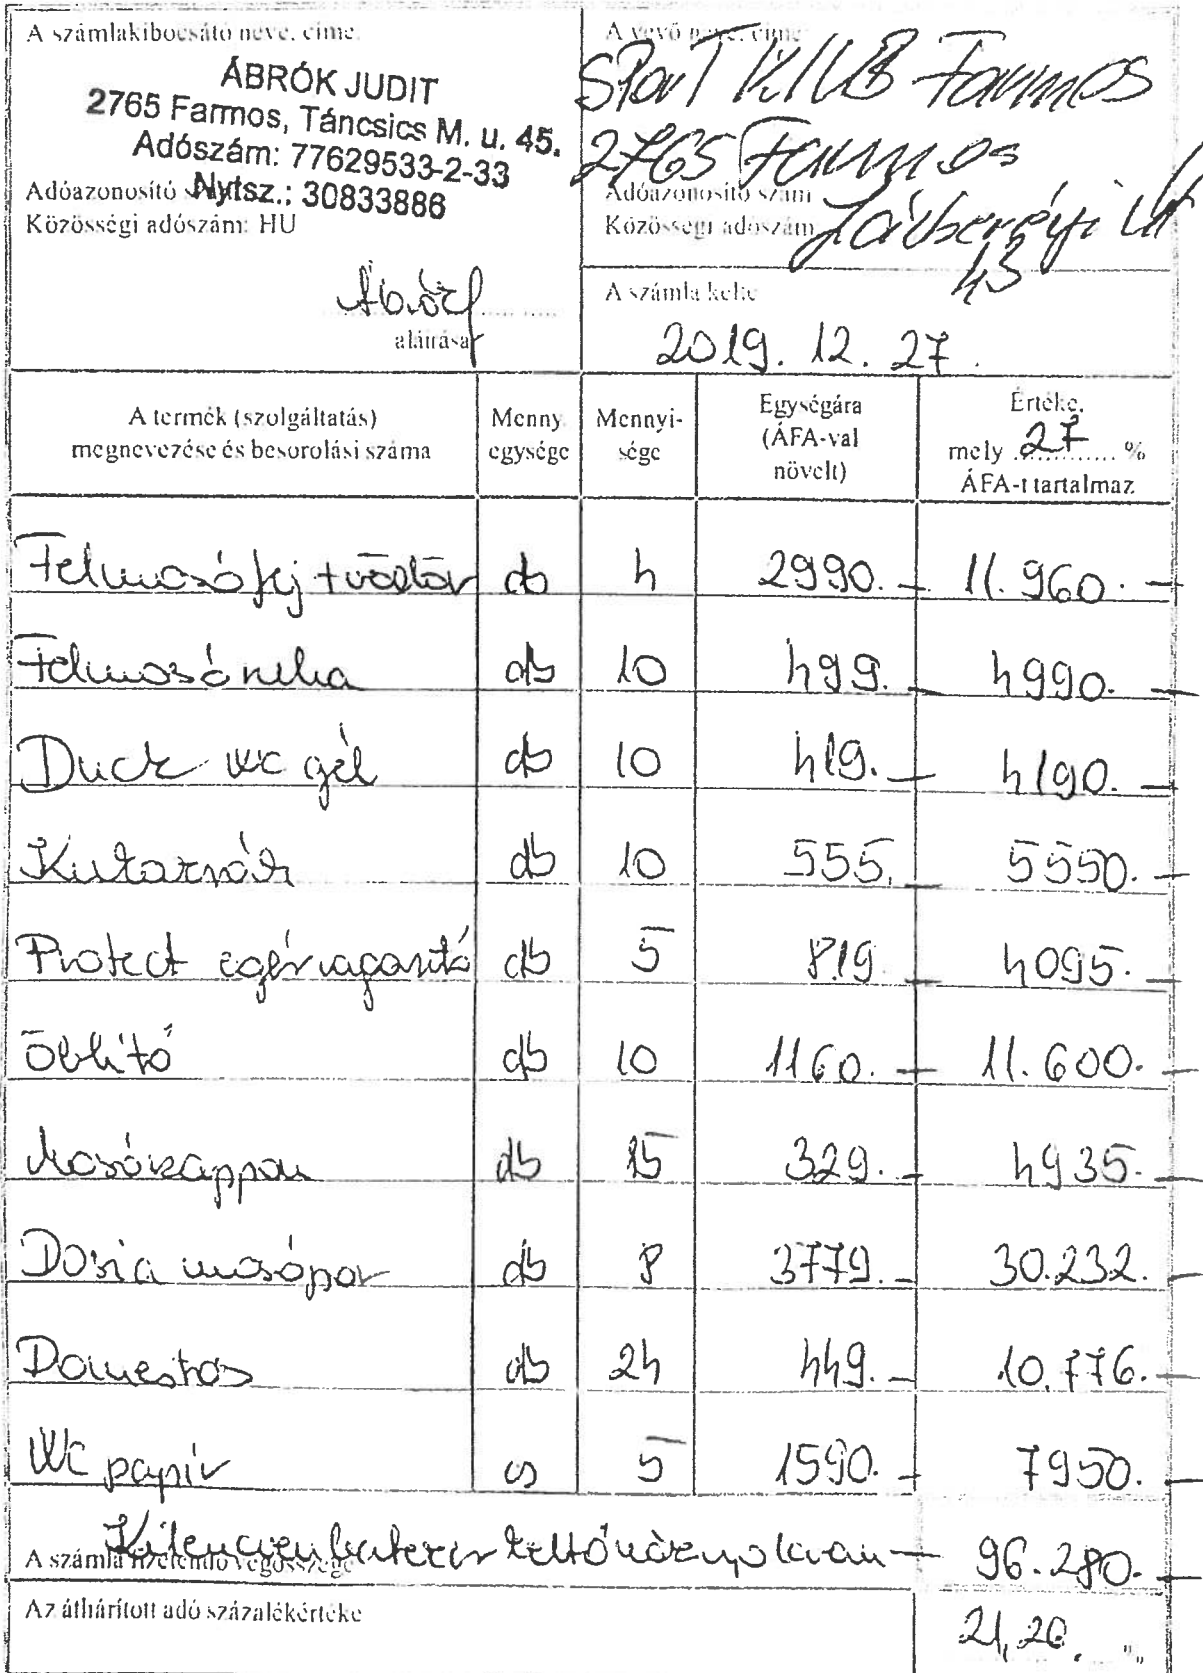 A számlakibocsátó neve, címe
ÁBRÓK JUDIT
2765 Farmos, Táncsics M. u. 45.
Adószám: 77629533-2-33
Adóazonosító Nytsz.: 30833886
Közösségi adószám: HU
aláírása
A vevő neve, címe
SPORT KLUB Farmos
2765 Farmos
Adóazonosító szám
Közösségi adószám
Jászberényi út
43
A számla kelte
2019. 12. 27.
A termék (szolgáltatás) megnevezése és besorolási száma
Menny. egysége
Mennyi-sége
Egységára (ÁFA-val növelt)
Értéke, mely 27 % ÁFA-t tartalmaz
Felmosófej + db 4 2990.- 11.960.-
Felmosó ruha db 10 499.- 4990.-
Duck wc gél db 10 419.- 4190.-
db 10 555.- 5550.-
Protect egérragasztó db 5 819.- 4095.-
Öblítő db 10 1160.- 11.600.-
Mosószappan db 15 329.- 4935.-
Dosia mosópor db 8 3779.- 30.232.-
Domestos db 24 449.- 10.776.-
WC papír cs 5 1590.- 7950.-
A számla fizetendő végösszege Kilencvenhatezer kettőnáznyolcvan - 96.280.-
Az áthárított adó százalékértéke 21,26. %